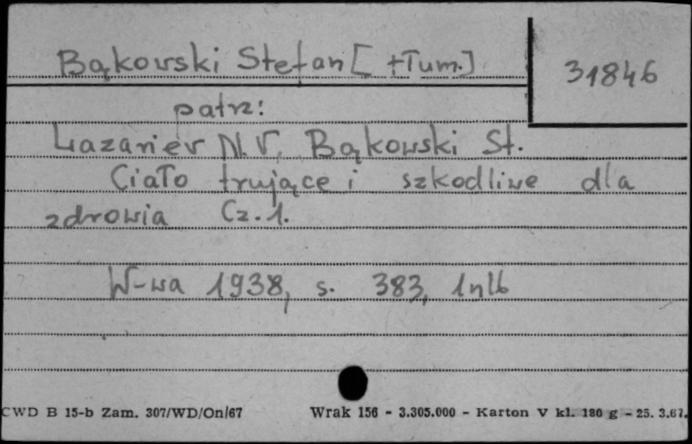 Bąkowski Stefan [ +Tłum.]
31846
patrz:
Łazariev N.V., Bąkowski St.
Ciało trujące i szkodliwe dla
zdrowia Cz. 1.
W-wa 1938, s. 383, 1nlb
CWD B 15-b Zam. 307/WD/On/67 Wrak 156 - 3.305.000 - Karton V kl. 180 g - 25. 3.67.